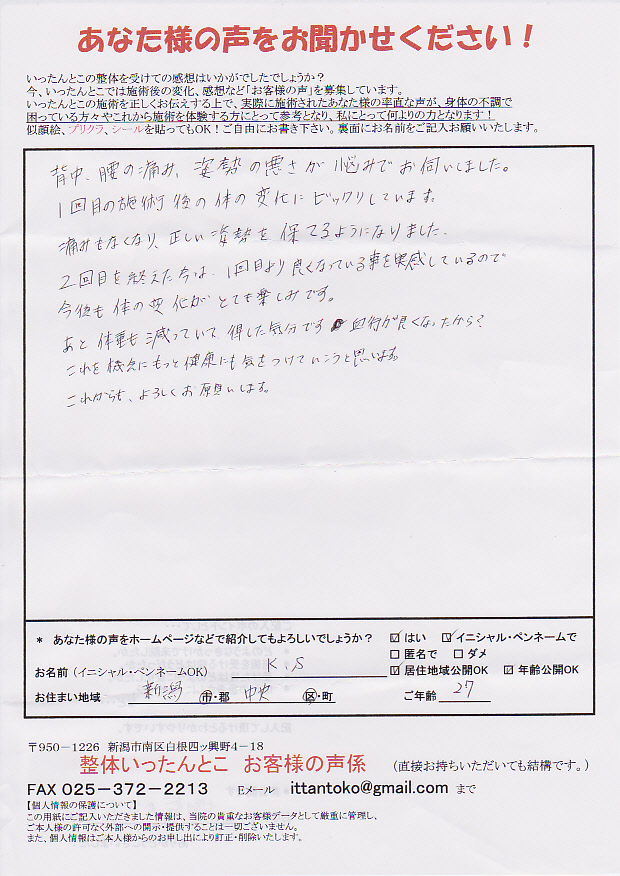 あなた様の声をお聞かせください！
いったんとこの整体を受けての感想はいかがでしたでしょうか？
今、いったんとこでは施術後の変化、感想など「お客様の声」を募集しています。
いったんとこの施術を正しくお伝えする上で、実際に施術されたあなた様の率直な声が、身体の不調で
困っている方々やこれから施術を体験する方にとって参考となり、私にとって何よりの力となります！
似顔絵、プリクラ、シールを貼ってもOK！ご自由にお書き下さい。裏面にお名前をご記入お願いいたします。
背中、腰の痛み、姿勢の悪さが悩みでお伺いしました。
1回目の施術後の体の変化にビックリしています。
痛みもなくなり、正しい姿勢を保てるようになりました。
2回目を終えた今は、1回目より良くなっている事を実感しているので
今後も体の変化がとても楽しみです。
あと体重も減っていて、得した気分です 血行が良くなったから？
これを機会にもっと健康にも気をつけていこうと思います。
これからも、よろしくお願いします。
* あなた様の声をホームページなどで紹介してもよろしいでしょうか？ ☑はい ☑イニシャル・ペンネームで
□匿名で □ダメ
お名前（イニシャル・ペンネームOK） K.S ☑居住地域公開OK ☑年齢公開OK
お住まい地域 新潟 市・郡 中央 区・町 ご年齢 27
〒950－1226 新潟市南区白根四ッ興野4－18
整体いったんとこ お客様の声係 （直接お持ちいただいても結構です。）
FAX 025－372－2213 Eメール ittantoko@gmail.com まで
【個人情報の保護について】
この用紙にご記入いただきました情報は、当院の貴重なお客様データとして厳重に管理し、
ご本人様の許可なく外部への開示・提供することは一切ございません。
また、個人情報はご本人様からのお申し出により訂正・削除いたします。